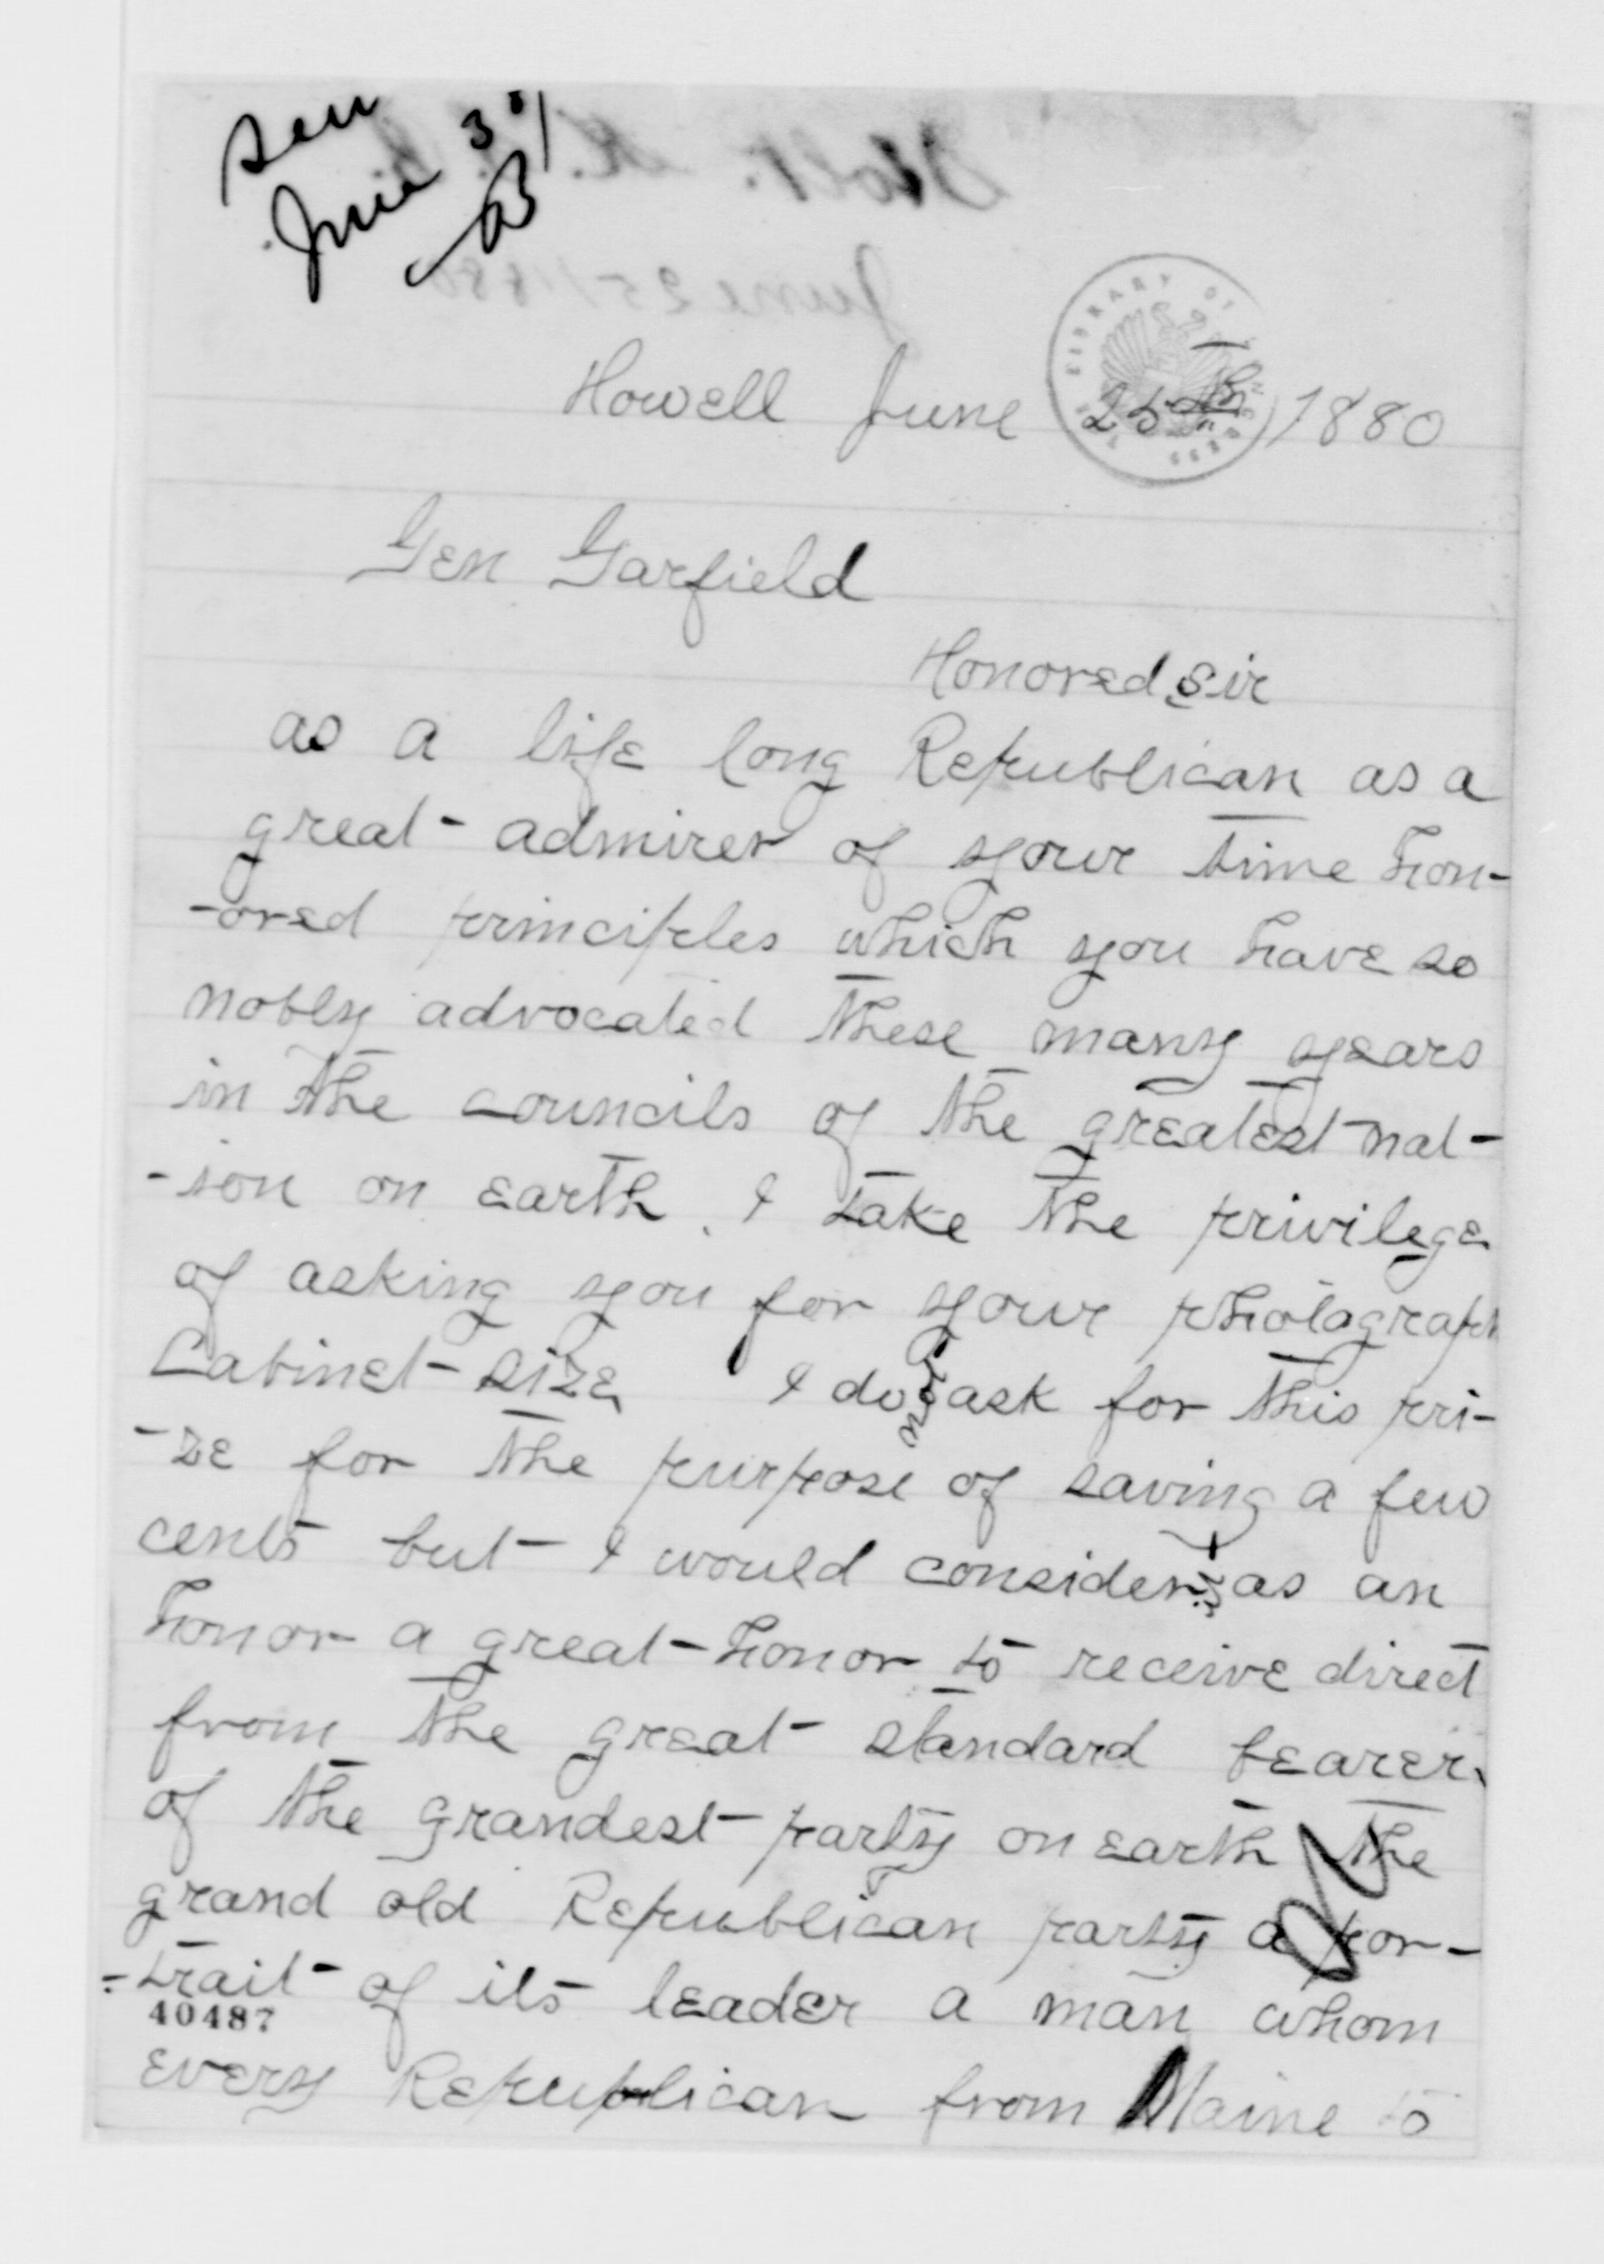 June
Howell June 25th 1880
Gen Garfield
Honored Sir
as a life long Republican as a
great admirer of your time hon-
-ored principles which you have so
nobly advocated these many years
in the councils of the greatest nat-
-ion on earth. I take the privilege
of asking you for your photograph
Cabinet size I do not ask for this pri-
-ze for the purpose of saving a few
cents but I would consider it as an
honor a great honor to receive direct
from the great standard bearer
of the grandest party on earth the
grand old Republican party a por-
-trait of its leader a man whom
40487
every Republican from Maine to